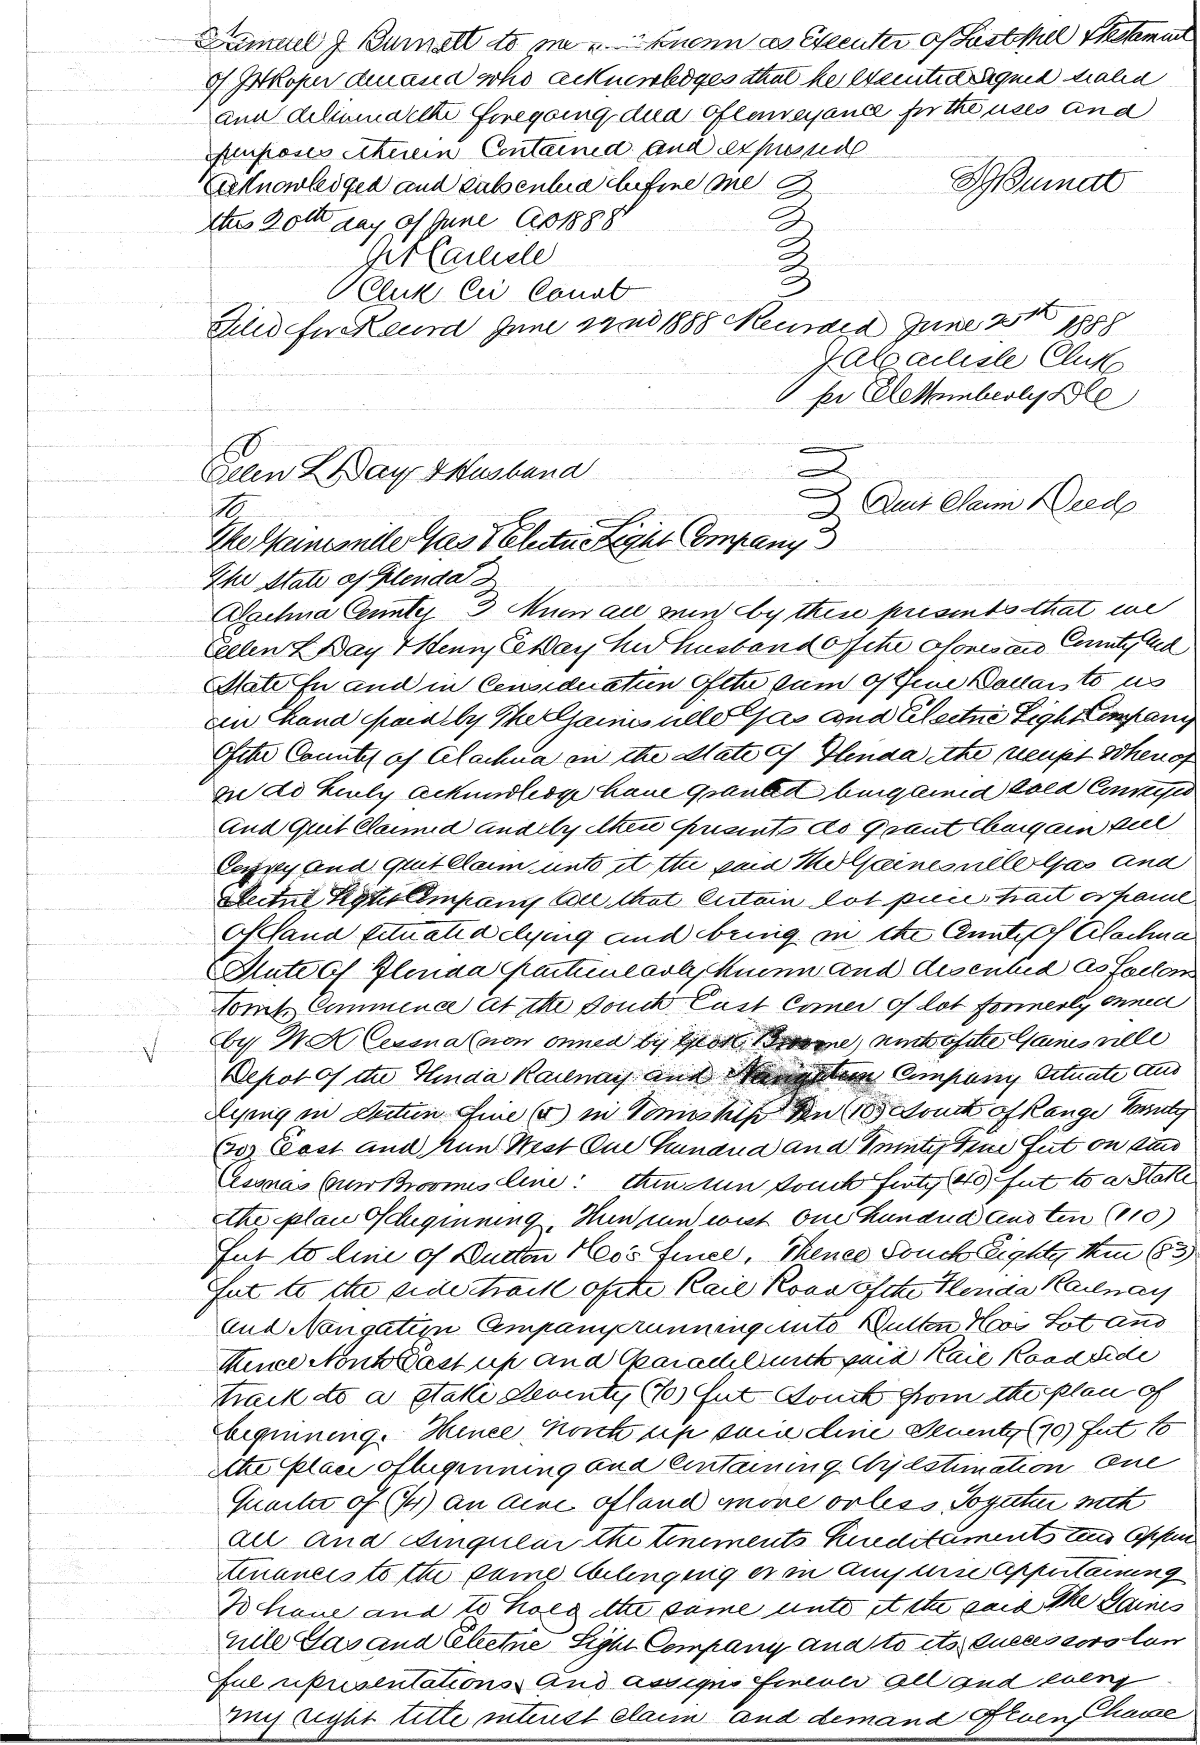 Samuel J Burnett to me known as Executer of Last Will & Testament
of deceased who acknowledges that he executed signed sealed
and delivered the foregoing deed of conveyance for the uses and
purposes therein Contained and expressed
Acknowledged and subscribed before me SJ Burnett
this 20th day of June AD 1888
JA Carlisle
Clerk Cir Court
Filed for Record June 22nd 1888 Recorded June 25th 1888
JA Carlisle Clerk
pr DC
Ellen L Day & Husband
To Quit Claim Deed
The Gainesville Gas & Electric Light Company
The State of Florida
Alachua County Know all men by these presents that we
Ellen L Day & Henry E Day her husband of the aforesaid County and
State for and in Consideration of the sum of Five Dollars to us
in hand paid by The Gainesville Gas and Electric Light Company
of the County of Alachua in the State of Florida the receipt whereof
we do hereby acknowledge have granted bargained sold Conveyed
and quit Claimed and by these presents do grant bargain sell
Convey and quit Claim unto it the said The Gainesville Gas and
Electric Light Company all that Certain lot piece tract or parcel
of land situated lying and being in the County of Alachua
State of Florida particularly Known and described as follows
towit, Commence at the South East Corner of lot formerly owned
by W K Cessna (now owned by Broome) north of the Gainesville
Depot of the Florida Railway and Navigation Company situate and
lying in Section five (5) in Township Ten (10) South of Range Twenty
(20) East and run West One hundred and Twenty Five feet on said
Cessnas (now Broomes line: then run South forty (40) feet to a Stake
the place of beginning. Then run west One hundred and ten (110)
feet to line of Dutton & Co's fence. Thence South Eighty three (83)
feet to the side track of the Rail Road of the Florida Railway
and Navigation Company running into Dutton & Co's Lot and
thence North East up and Paralell with said Rail Road side
track to a stake Seventy (70) feet South from the place of
beginning. Thence North up said line Seventy (70) feet to
the place of beginning and Containing by estimation one
Quarter of (1/4) an acre of land more or less. Together with
all and singular the tenements hereditaments and appur
tenances to the same belonging or in any wise appertaining
To have and to hold the same unto it the said The Gaines
ville Gas and Electric Light Company and to its successors law
ful representations and assigns forever all and every
my right title interest claim and demand of every Chance